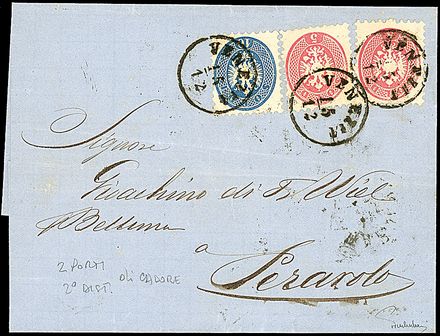 VENEZIA
15
12
5
VENEZIA
15
12
VENEZIA
12
Signore
Gioachino di F. Wiel
Belluno
a
Perarolo
2 PORTI
2° DIST. di CADORE